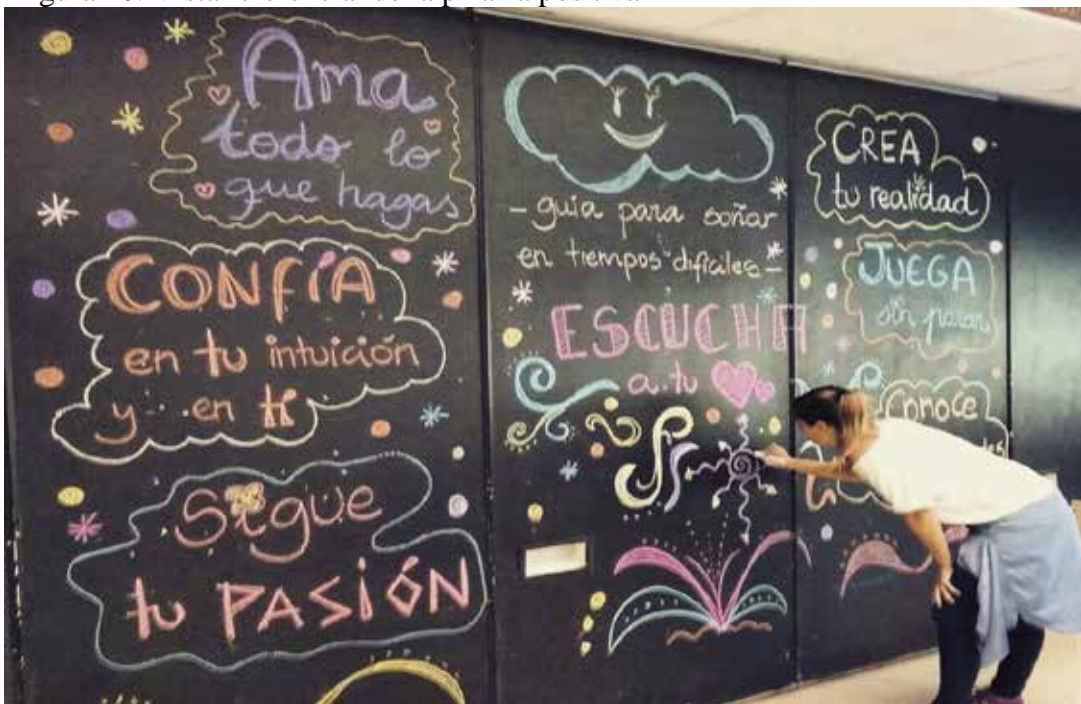 Ama
todo lo
que hagas
CONFÍA
en tu intuición
y en ti
Sigue
tu PASIÓN
- guía para soñar
en tiempos difíciles -
ESCUCHA
a tu
CREA
tu realidad
JUEGA
sin parar
Conoce